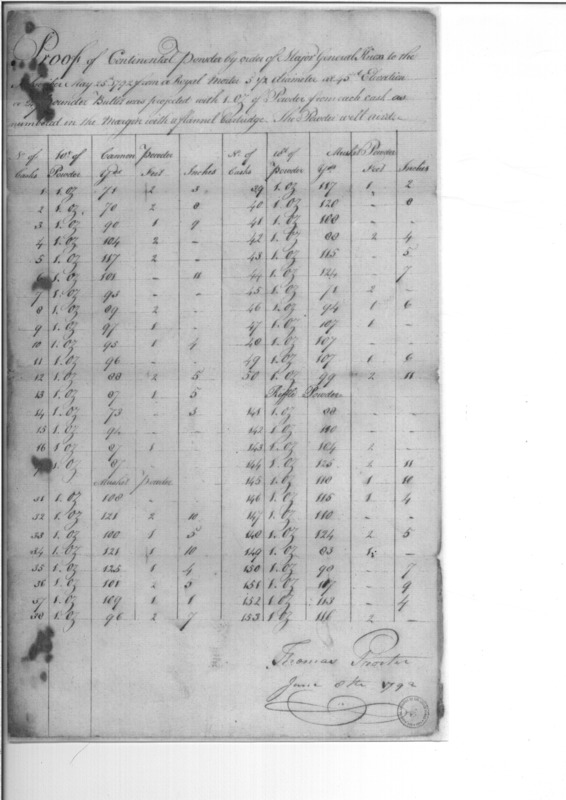 Proof of Continental Powder by order of Major General Knox to the
May 25th 1792 from a Royal Morter 5 1/2 diameter at 45d Elevation
a 24 pounder Bullet was projected with 1. Oz of Powder from each cask as
numbered in the Margin with a flannel Cartridge. The Powder will
No of Wt of Cannon Powder No of Wt of Musket Powder
Casks Powder Yds Feet Inches Casks Powder Yds Feet Inches
1 1. oz 71 2 39 1. oz 117 1 2
2 1. oz 70 2 8 40 1. oz 120 - 8
3 1. oz 90 1 9 41 1. oz 108 - -
4 1. oz 104 2 - 42 1. oz 2 4
5 1. oz 117 2 - 43 1. oz 115 - 5
6 1. oz 101 - 11 44 1. oz 124 - 7
7 1. oz 95 - - 45 1. oz 71 2 -
8 1. oz 89 2 - 46 1. oz 94 1 6
9 1. oz 97 1 - 47 1. oz 107 1 -
10 1. oz 95 1 4 48 1. oz 107 - -
11 1. oz 96 - - 49 1. oz 107 1 6
12 1. oz 88 2 5 50 1. oz 99 2 11
13 1. oz 87 1 5 Riffle Powder
14 1. oz 73 - 141 1. oz 88 - -
15 1. oz 94 - - 142 1. oz 110 - -
16 1 oz 87 1 143 1. oz 104 -
1. oz 87 144 1. oz 125 2 11
Musket Powder 145 1. oz 110 1 10
31 1. oz 108 - 146 1. oz 115 1 4
32 1. oz 121 2 10 147 1. oz 110 - -
33 1. oz 100 1 5 148 1. oz 124 2 5
34 1. oz 121 1 10 149 1. oz 83 -
35 1. oz 125 1 4 150 1. oz 90 - 7
36 1. oz 101 2 151 1. oz 107 - 9
37 1. oz 109 1 1 152 1. oz 113 - 4
38 1. oz 96 2 7 153 1. oz 116 2 -
Thomas Procter
June 8th 1792